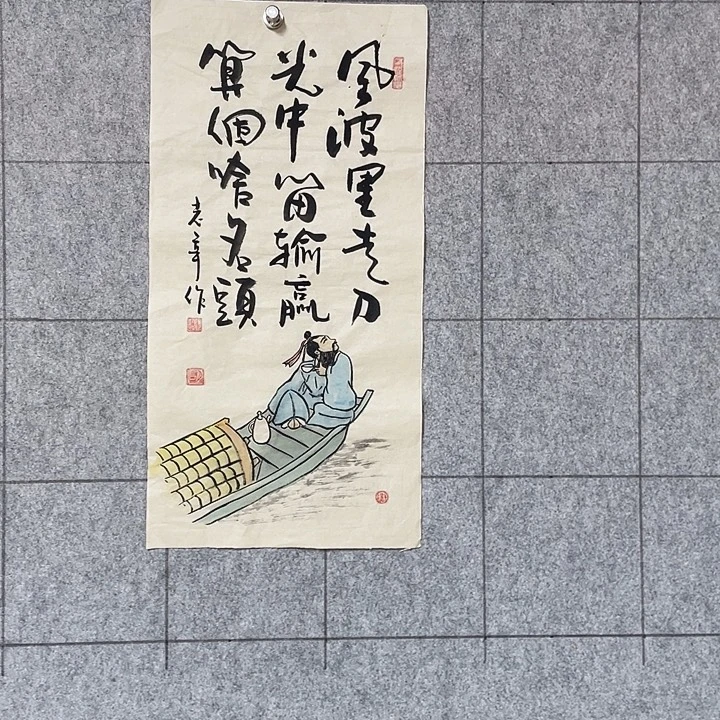 風波里走刀
光中留輸贏
算個啥名頭
老辛作